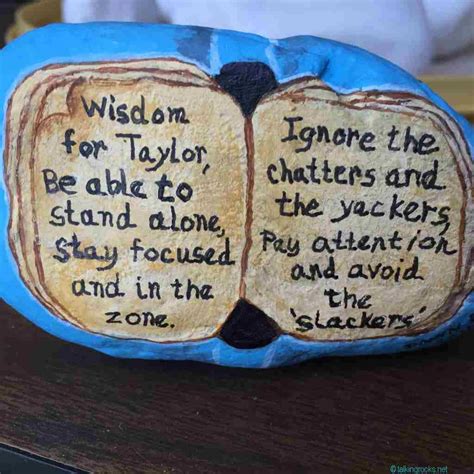 Wisdom
for Taylor,
Be able to
stand alone,
stay focused
and in the
zone.
Ignore the
chatters and
the yackers,
Pay attention
and avoid
the
'slackers'
© talkingrocks.net